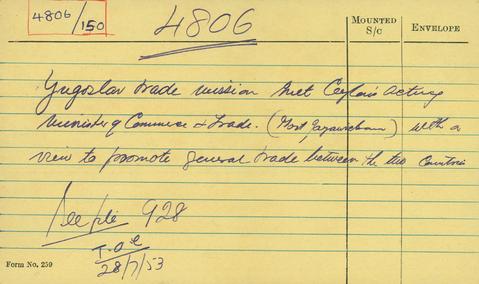 4806/150
4806
MOUNTED S/C
ENVELOPE
Yugoslav trade mission met Ceylon's acting
Minister of Commerce & Trade. (Mont Jayawickrama) with a
view to promote general trade between the two Countries
See file 928
T.O.C
28/7/53
Form No. 259